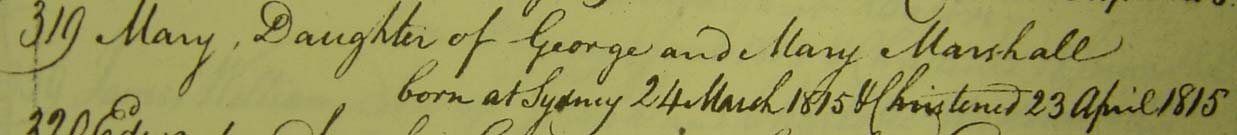 319 Mary, Daughter of George and Mary Marshall
born at Sydney 24 March 1815 & Christened 23 April 1815
320